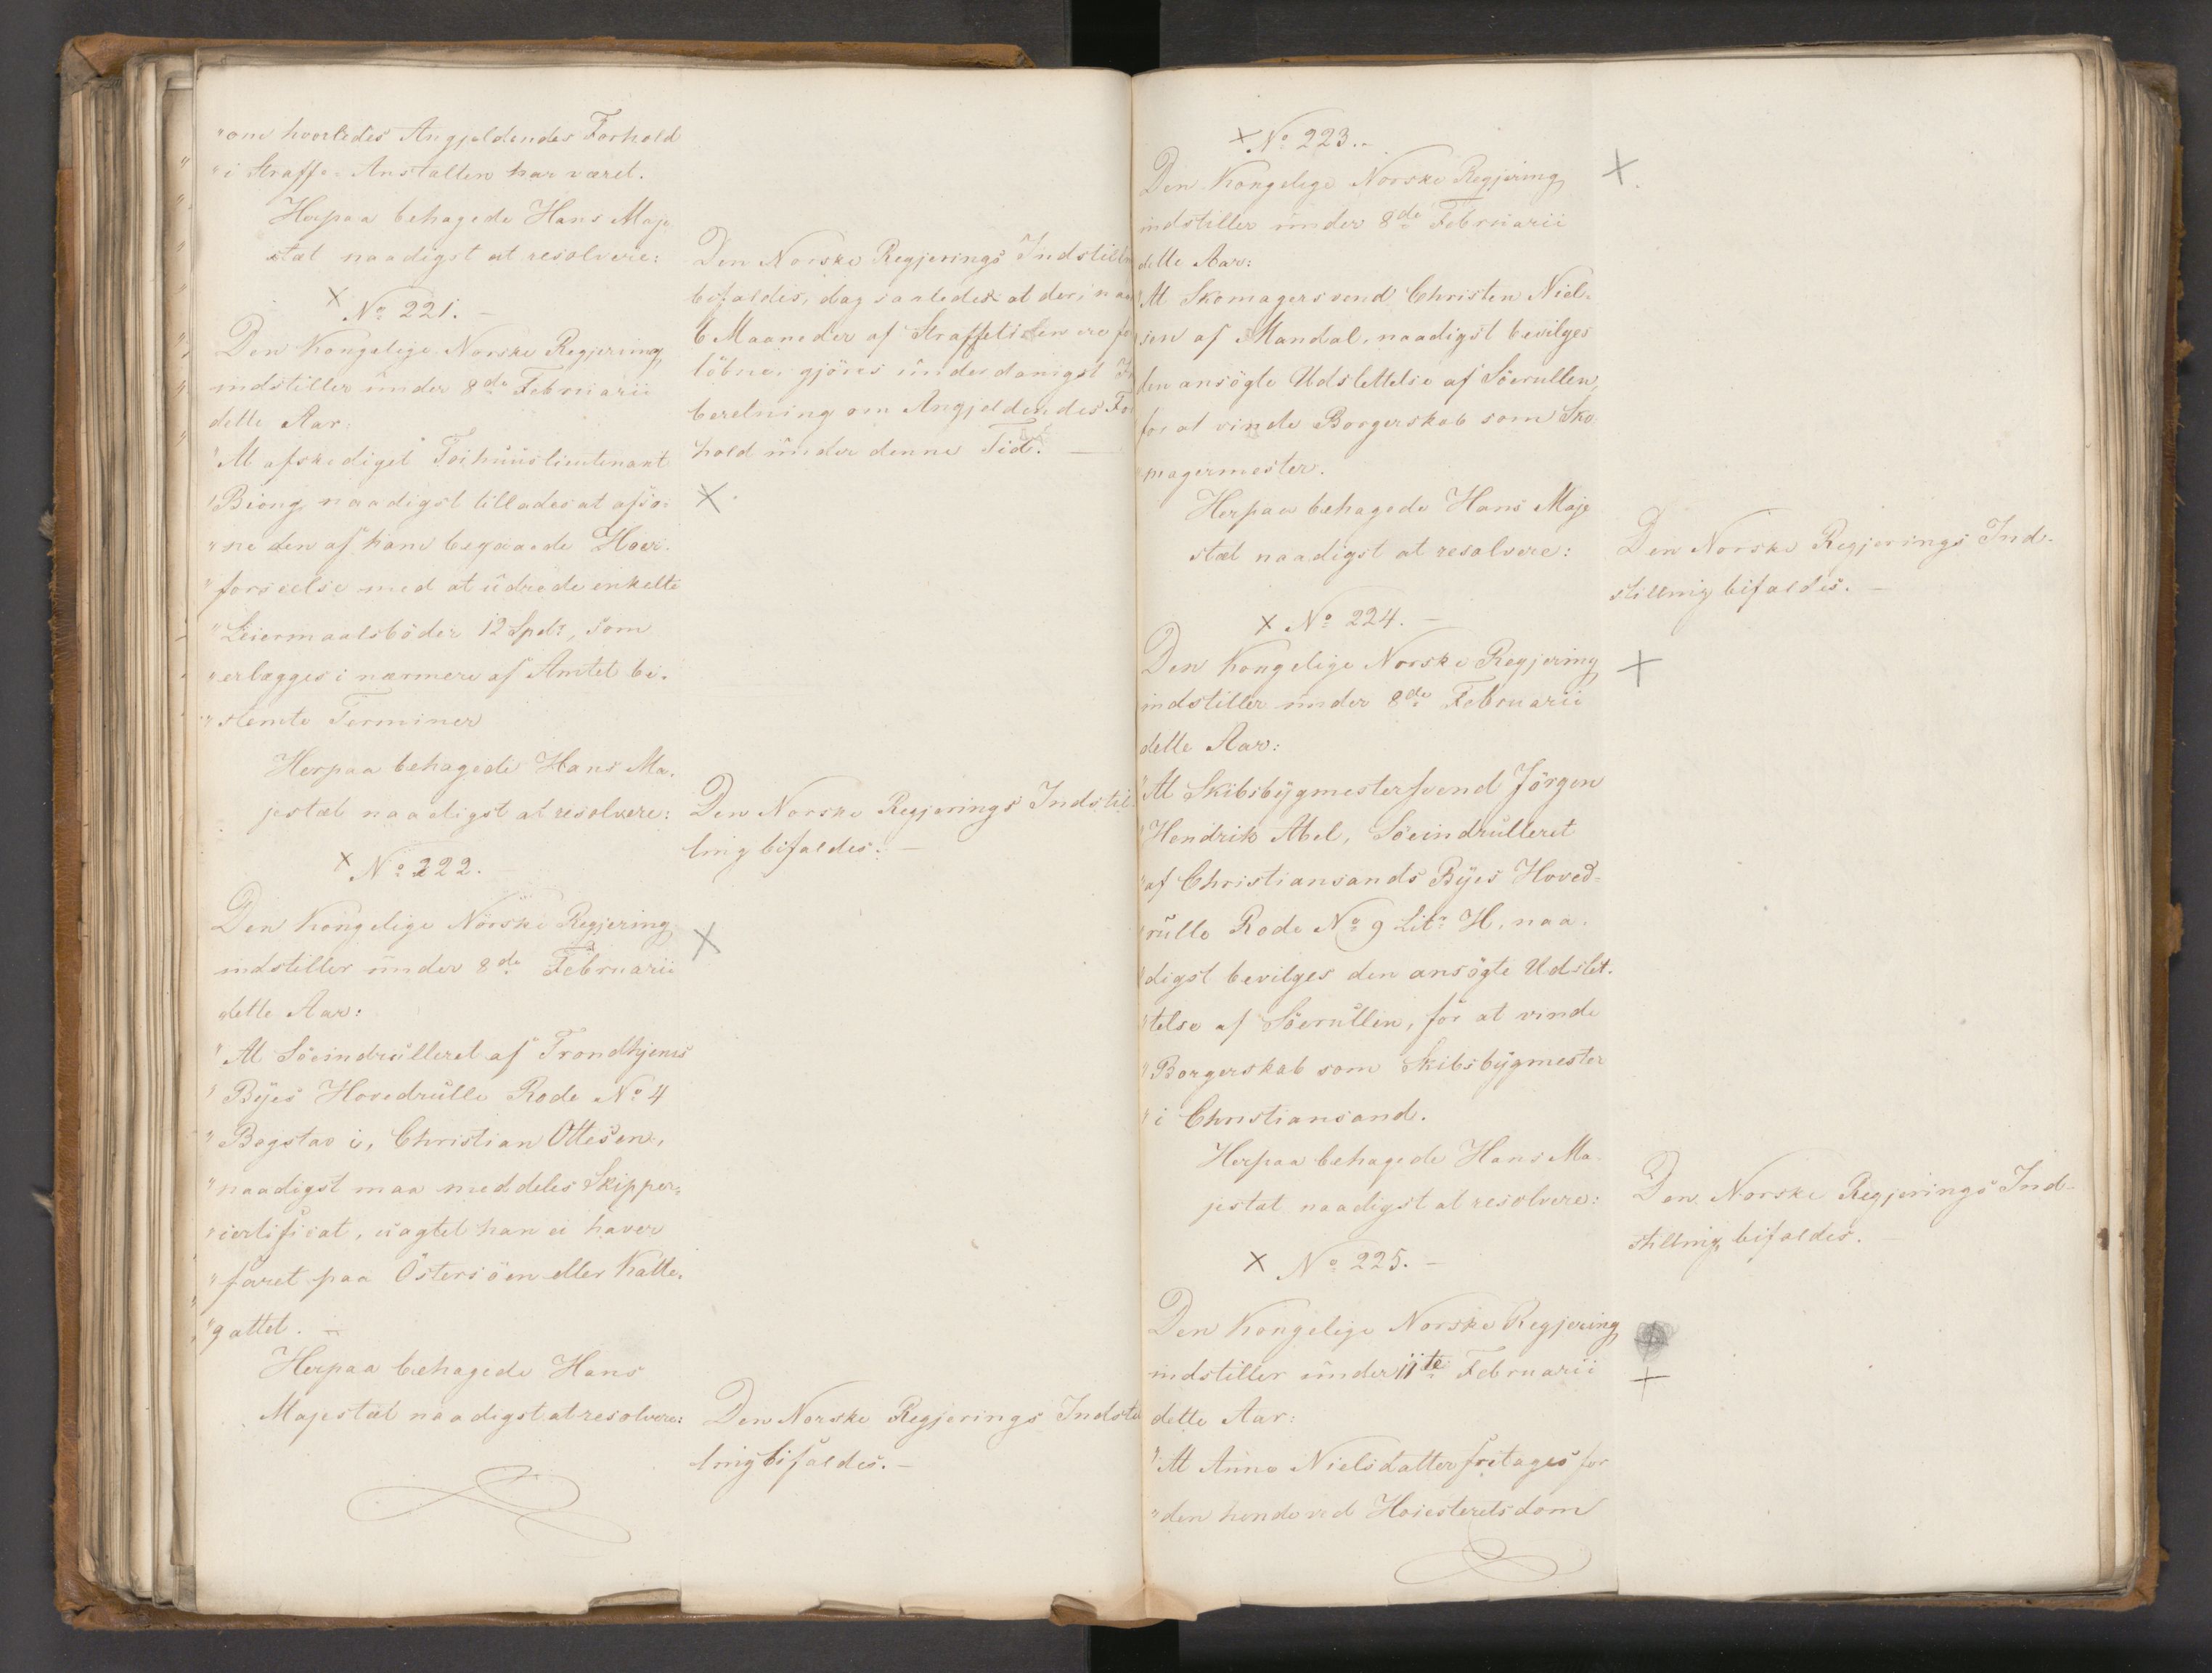 "om hvorledes Angjeldendes Forhold
"i Straffe-Anstalten har været.
Herpaa behagede Hans Maje-
stæt naadigst at resolvere:
Den Norske Regjerings Indstilln
bifaldes, dog saaledes at der, naar
6 Maaneder af Straffetiden ere for
löbne, gjöres underdanigst
beretning om Angjeldendes For
hold under denne Tid. —
× No 221. —
Den Kongelige Norske Regjering
indstiller under 8de Februarii
dette Aar:
"At afskediget Töihuuslieutenant
"Biong naadigst tillades at afso-
"ne den af ham begaaede Hoer-
"forseelse med at udrede enkelte
"Leiermaalsböder 12 Spdr, som
"erlægges i nærmere af Amtet be-
"stemte Terminer
×
Herpaa behagede Hans Ma-
jestæt naadigst at resolvere:
Den Norske Regjerings Indstil
ling bifaldes. —
× No 222.
Den Kongelige Norske Regjering
indstiller under 8de Februarii
dette Aar:
×
"At Söeindrulleret af Trondhjems
"Byes Hovedrulle Rode No 4
"Bogstav i, Christian Ottesen,
"naadigst maa meddeles Skipper-
"certificat, uagtet han ei haver
"faret paa Östersöen eller Katte-
"gattet. —
Herpaa behagede Hans
Majestæt naadigst at resolvere:
Den Norske Regjerings Indstil
ling bifaldes. —
× No 223. —
Den Kongelige Norske Regjering
indstiller under 8de Februarii
dette Aar:
×
"At Skomagersvend Christen Niel-
sen af Mandal, naadigst bevilges
den ansögte Udslettelse af Söerullen,
for at vinde Borgerskab som Sko
"magermester.
Herpaa behagede Hans Maje
stæt naadigst at resolvere:
Den Norske Regjerings Ind-
stilling bifaldes. —
× No 224. —
Den Kongelige Norske Regjering
indstiller under 8de Februarii
dette Aar:
×
"At Skibsbygmestersvend Jörgen
"Hendrik Abel, Söeindrulleret
"af Christiansands Byes Hoved-
"rulle Rode No 9 Litr H, naa-
"digst bevilges den ansögte Udslet-
"telse af Söerullen, for at vinde
"Borgerskab som Skibsbygmester
"i Christiansand.
Herpaa behagede Hans Ma-
jestæt naadigst at resolvere:
Den Norske Regjerings Ind-
stilling bifaldes. —
× No 225. —
Den Kongelige Norske Regjering
indstiller under 11te Februarii
dette Aar:
×
"At Anne Nielsdatter fritages for
"den hende ved Höiesteretsdom